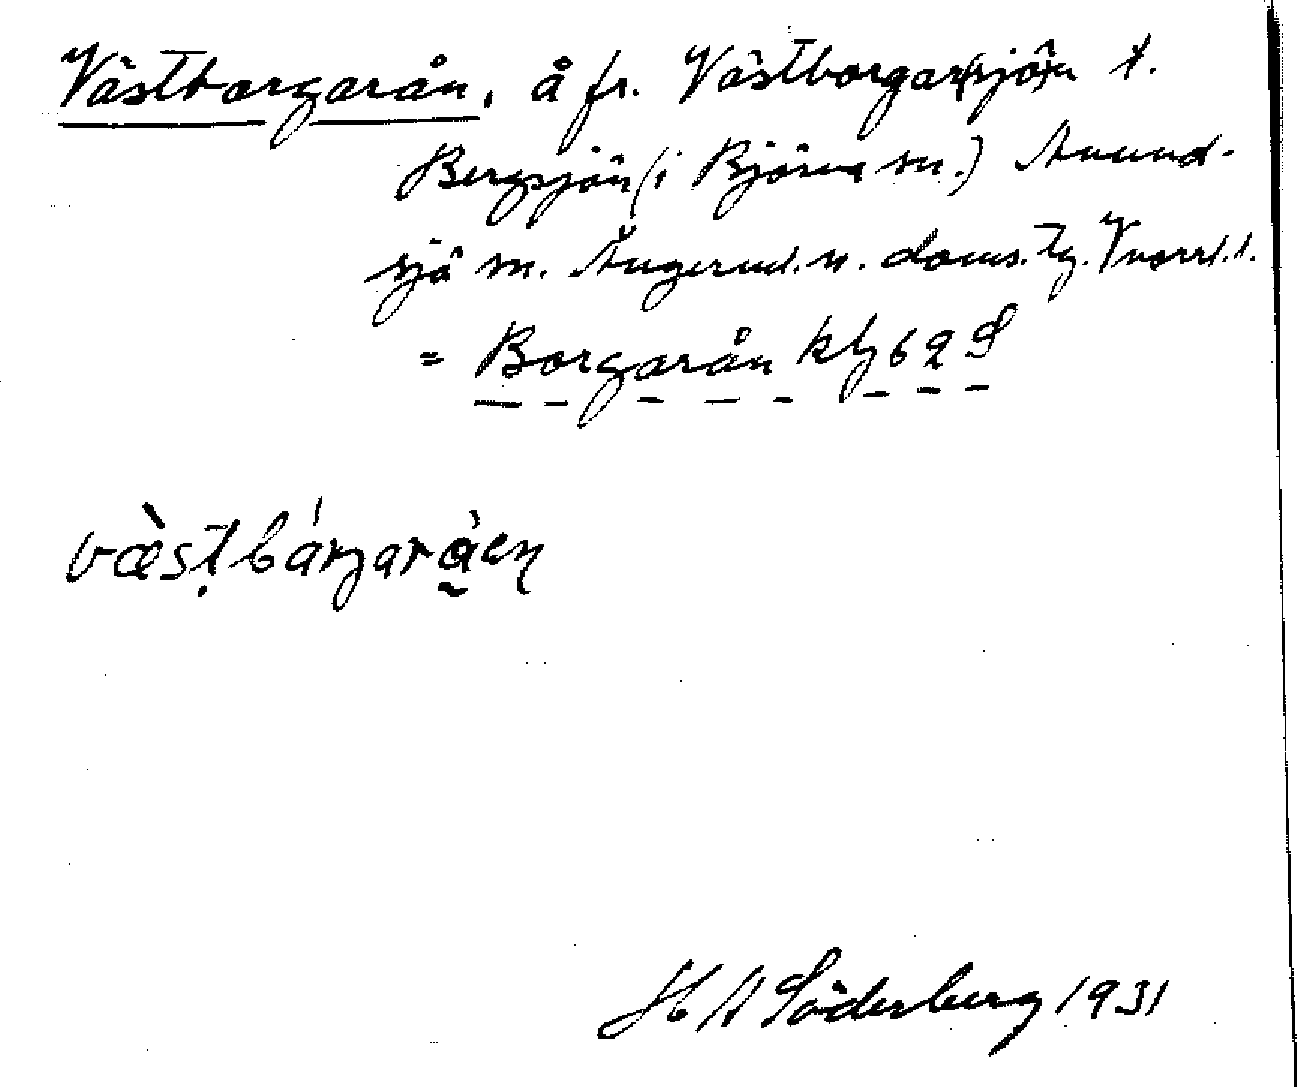 Västborgarån, å fr. Västborgar(sjö)n t.
Bergsjön (i Björna sn.) Anund-
sjö sn. Ångerml. n. doms. tg. Vnorrl. l.
= Borgarån kbl 62 S
væstbárgaråen
H A Söderberg 1931